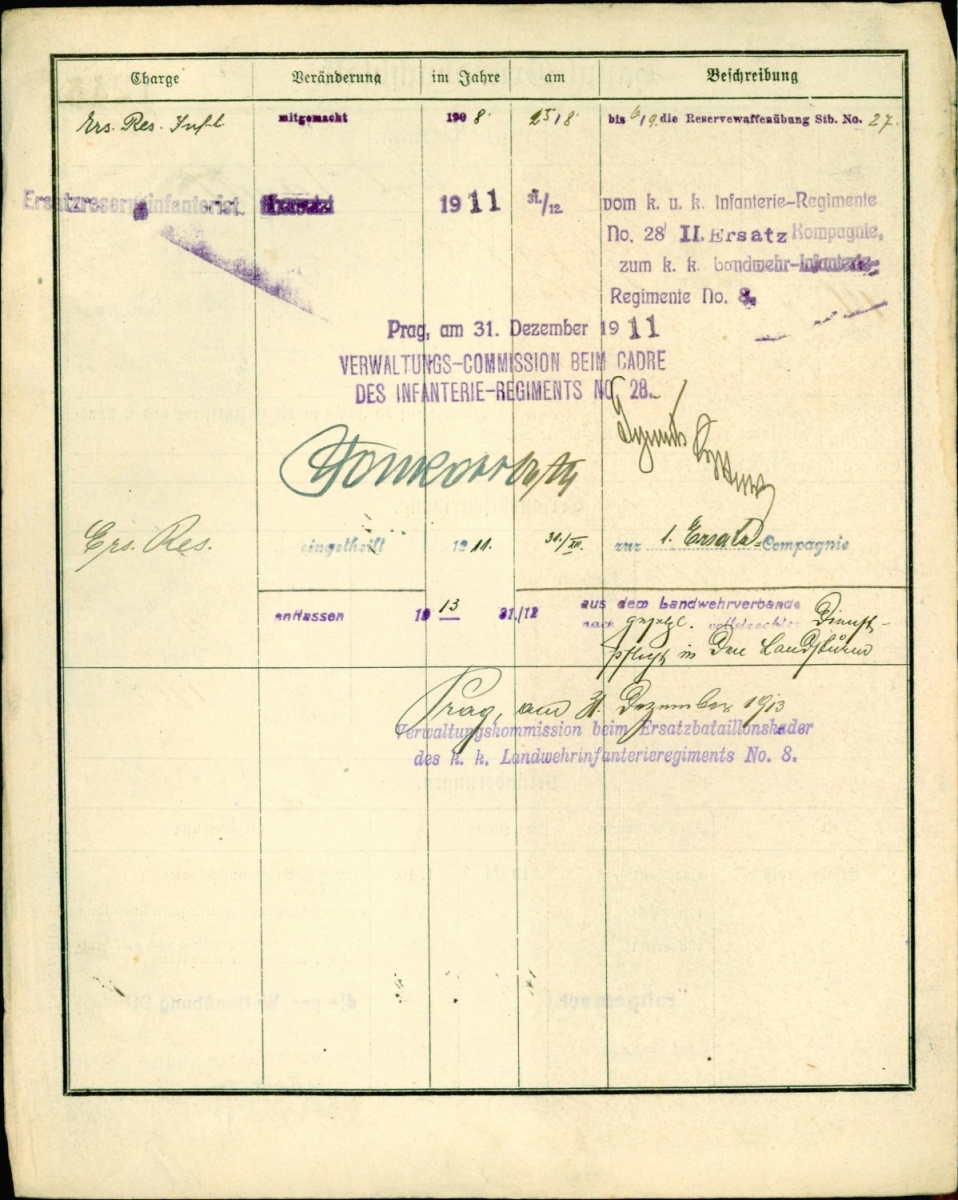 Charge Veränderung im Jahre am Beschreibung
Ers. Res. Inft mitgemacht 1908. 25/8 bis 6/9. die Reservewaffenübung Stb. No. 27.
Ersatzreserveinfanterist 1911 31./12. vom k. u. k. Infanterie-Regimente
No. 28 II. Ersatz Kompagnie,
zum k. k. Landwehr-Infanterie-
Regimente No. 8.
Prag, am 31. Dezember 1911
VERWALTUNGS-COMMISSION BEIM CADRE
DES INFANTERIE-REGIMENTS NO. 28.
Ers. Res. eingetheilt 1911. 31./XII. zur 1. Ersatz-Compagnie
entlassen 1913 31./12 aus dem Landwehrverbande
nach gesetzl. vollstreckter Dienst-
pflicht in den Landsturm
Prag, am 31. Dezember 1913
Verwaltungskommission beim Ersatzbataillonskader
des k. k. Landwehrinfanterieregiments No. 8.